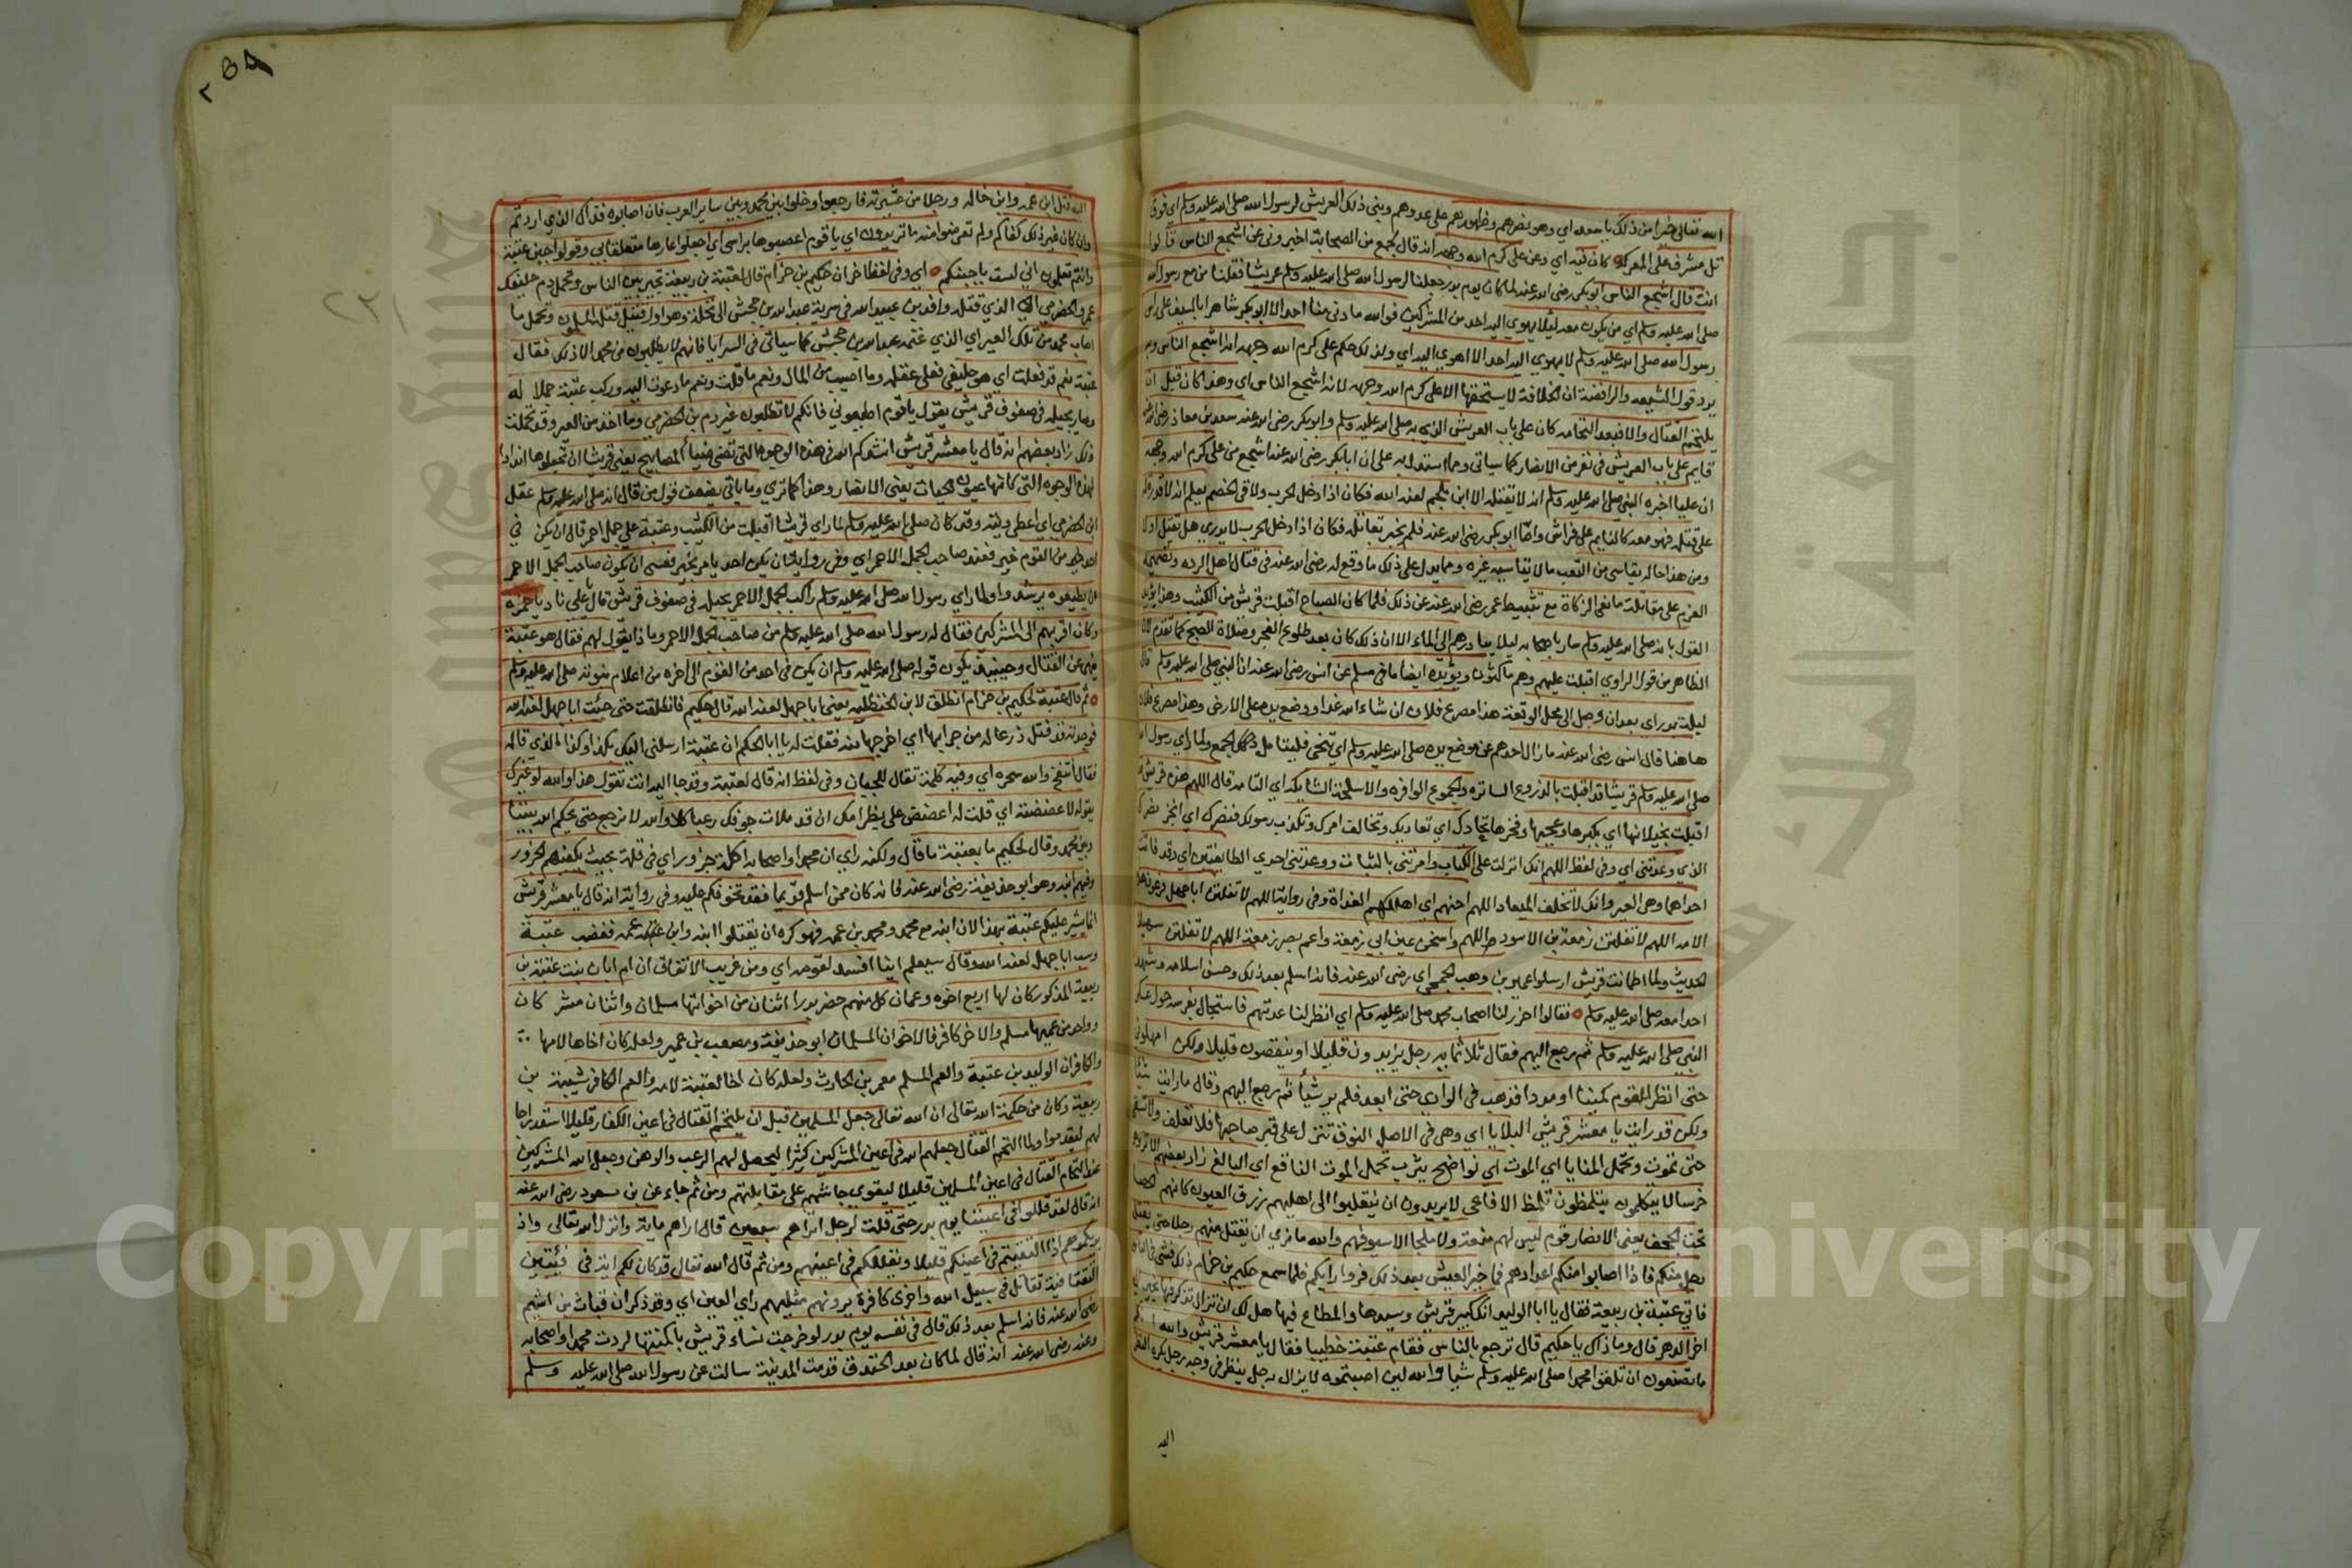 الله تعالى خيرا من ذلك يا سعد اي وهو نصرهم وظهورهم على عدوهم وبنى ذلك العريش لرسول الله صلى الله عليه وسلم اي فوق
تل مشرف على المعركة كان فيه اي وعن علي كرم الله وجهه انه قال لجمع من الصحابة اخبروني عن اشجع الناس قالوا
انت قال اشجع الناس ابو بكر رضى الله عنه لما كان يوم بدر جعلنا لرسول الله صلى الله عليه وسلم عريشا فقلنا من مع رسول الله
صلى الله عليه وسلم اي من يكون معه لئلا يهوي اليه احد من المشركين فوالله ما دنى منا احد الا ابو بكر شاهرا بالسيف على راس
رسول الله صلى الله عليه وسلم لا يهوي اليه احد الا اهوي اليه اي ولذلك حكم على كرم الله وجهه انه اشجع الناس وبه
يرد قول الشيعه والرافضة ان الخلافة لا يستحقها الا على كرم الله وجهه لانه اشجع الناس اي وهذا كان قبل ان
يلتحم القتال والا فبعد التحامه كان على باب العريش الذي به صلى الله عليه وسلم وابو بكر رضى الله عنه سعد بن معاذ رضى الله
قايم على باب العريش في نفر من الانصار كما سياتي ومما استدل به على ان ابا بكر رضى الله عنه اشجع من على كرم الله وجهه
ان عليا اخبره النبي صلى الله عليه وسلم انه لا يقتله الا ابن ملجم لعنه الله فكان اذا دخل الحرب ولاقى الخصم يعلم انه لا قدرة له
على قتله فهو معه كالنايم على فراش واما ابو بكر رضى الله عنه فلم يخبر بقاتله فكان اذا دخل الحرب لا يدري هل يقتل او لا
ومن هذا حاله يقاسي من التعب ما لا يقاسيه غيره ومما يدل على ذلك ما وقع له رضى الله عنه في قتال اهل الرده وتصميمه
العزم على مقاتلة مانعى الزكاة مع تثبيط عمر رضى الله عنه عن ذلك فلما كان الصباح اقبلت قريش من الكثيب وهذا يؤيد
القول بانه صلى الله عليه وسلم سار باصحابه ليلا يبادرهم الى الماء الا ان ذلك كان بعد طلوع الفجر وصلاة الصبح كما تقدم لان
الظاهر من قول الراوي اقبلت عليهم وهم ماكثون ويؤيده ايضا ما في مسلم عن انس رضى الله عنه ان النبي صلى الله عليه وسلم قال
ليلة بدر اي بعد ان وصل الى محل الوقعة هذا مصرع فلان ان شاء الله غدا ووضع يده على الارض وهذا مصرع فلان
هاهنا قال انس رضى الله عنه ما زال احدهم عن موضع يده صلى الله عليه وسلم اي تنحى فليتامل ذلك الجمع ولما راي رسول الله
صلى الله عليه وسلم قريشا قد اقبلت بالدروع الساتره والجموع الوافره والاسلحة الشاكة اي التامه قال اللهم هذه قريش
اقبلت بخيلائها اي بكبرها وعجبها وفخرها تحادك اي تعاديك وتخالف امرك وتكذب رسولك فنصرك اي انجز نصرك
الذي وعدتني اي وفي لفظ اللهم انك انزلت على الكتاب وامرتني بالثبات ووعدتني احدي الطايفتين اي وقد فاتت
احداهما وهى العير وانك لا تخلف الميعاد اللهم احنهم اي اهلكهم الغداة وفي رواية اللهم لا تفلتن ابا جهل فرعون هذه
الامه اللهم لا تفلتن زمعة بن الاسود اللهم واسخن عين ابي زمعة واعم بصر زمعة اللهم لا تفلتن سهيلا
الحديث ولما اطمانت قريش ارسلوا عمير بن وهب الجمحي اي رضى الله عنه فانه اسلم بعد ذلك وحسن اسلامه وشهد
احدا معه صلى الله عليه وسلم فقالوا احزر لنا اصحاب محمد صلى الله عليه وسلم اي انظر لنا عدتهم فاستجال بفرسه حول عسكر
النبي صلى الله عليه وسلم ثم رجع اليهم فقال ثلاثمايه رجل يزيدون قليلا او ينقصون قليلا ولكن امهلوني
حتى انظر اللقوم كمينا او مددا فذهب في الوادي حتى ابعد فلم ير شيأ ثم رجع اليهم وقال ما رايت شيا
ولكن قد رايت يا معشر قريش البلايا اي وهى في الاصل النوق تترك على قبر صاحبها فلا تعلف ولا تسقى
حتى تموت وتحمل المنايا اي الموت اي نواضح يثرب تحمل الموت الناقع اي البالغ زاد بعضهم الا ترونهم
خرسا لا يتكلمون يتلمظون تلمظ الافاعى لا يريدون ان ينقلبوا الى اهليهم زرق العيون كانهم الحصا
تحت الجحف يعنى الانصار قوم ليس لهم منعة ولا ملجا الا سيوفهم والله ما نري ان نقتل منهم رجلا حتى يقتل
رجل منكم فاذا اصابوا منكم اعدادهم فما خير العيش بعد ذلك فروا رايكم فلما سمع حكيم بن حزام ذلك مشى في الناس
فاتى عتبة بن ربيعة فقال يا ابا الوليد انك كبير قريش وسيدها والمطاع فيها هل لك ان تزال تذكر فيها بخير الى
اخر الدهر قال وما ذاك يا حكيم قال ترجع بالناس فقام عتبة خطيبا فقال يا معشر قريش والله
ما تصنعون ان تلقوا محمدا صلى الله عليه وسلم شيا والله لين اصبتموه لا يزال رجل ينظر في وجه رجل يكره النظر
اليه
٢٥٨
اليه قتل ابن عمه وابن خاله ورجلا من عشيرته فارجعوا وخلوا بين محمد وبين ساير العرب فان اصابوه فذاك الذي اردتم
وان كان غير ذلك كفاكم ولم تعرضوا منه ما تريدون اي يا قوم اعصبوها براسي اي اجعلوا عارها متعلقا بي وقولوا جبن عتبة
وانتم تعلمون اني لست باجبنكم اي وفي لفظ اخر ان حكيم بن حزام قال لعتبة بن ربيعة تجير بين الناس وتحمل دم حليفك
عمرو الحضرمي الذي قتله واقد بن عبد الله في سرية عبد الله بن جحش الى نخلة وهو اول قتيل قتله المسلمون وتحمل ما
اصاب محمد من تلك العير اي الذي غنمه عبد الله بن جحش كما سياتي في السرايا فانهم لا يطلبون من محمد الا ذلك فقال
عتبة نعم قد فعلت اي هو حليفي فعلي عقله وما اصيب من المال ونعم ما قلت ونعم ما دعوت اليه وركب عتبة جملا له
وصار يجيله في صفوف قريش يقول يا قوم اطيعوني فانكم لا تطلبون غير دم بن الحضرمي وما اخذ من العير وقد تحملت
ذلك زاد بعضهم انه قال يا معشر قريش انشدكم الله في هذه الوجوه التي تضي ضيأ المصابيح يعنى قريشا ان تجعلوها اندادا
لهذه الوجوه التي كانها عيون الحيات يعني الانصار وهذا كما تري وما ياتي يضعف قول من قال انه صلى الله عليه وسلم عقل
ابن الحضرمي اي اعطى ديته وقد كان صلى الله عليه وسلم لما راي قريشا اقبلت من الكثيب وعتبة على جمل احمر قال ان يكن في
احد من القوم خير فعند صاحب الجمل الاحمر اي وفي رواية ان يكن احد يامر بخير فعسى ان يكون صاحب الجمل الاحمر
ان يطيعوه يرشدوا ولما راي رسول الله صلى الله عليه وسلم راكب الجمل الاحمر يجيله في صفوف قريش قال يا على ناد يا حمزه
وكان اقربهم الى المشركين فقال له رسول الله صلى الله عليه وسلم من صاحب الجمل الاحمر وماذا يقول لهم فقال هو عتبة
ينهى عن القتال وحينيذ يكون قوله صلى الله عليه وسلم ان يكن في احد من القوم الى اخره من اعلام نبوته صلى الله عليه وسلم
ثم قال عتبة لحكيم بن حزام انطلق لابن الحنظليه يعنى ابا جهل لعنه الله قال حكيم فانطلقت حتى جئت ابا جهل لعنه الله
فوجدته قد نثل درعا له من جرابها اي اخرجها منه فقلت له يا ابا الحكم ان عتبة ارسلني اليك بكذا وكذا للذي قاله
فقال انتفخ والله سحره اي وفيه كلمة تقال للجبان وفي لفظ انه قال لعتبة وقد جا اليه انت تقول هذا والله لو غيرك
يقوله لاعضضته اي قلت له اعضض على بظر امك ان قد ملات جوفك رعبا كلا والله لا نرجع حتى يحكم الله بيننا
وبين محمد وقال لحكيم ما بعتبة ما قال ولكنه راي ان محمدا واصحابه اكلة جزور اي في قلة بحيث يكفيهم الجزور
وفيهم ابنه وهو ابو حذيفة رضى الله عنه فانه كان ممن اسلم قديما فقد تخوفكم عليه وفي رواية انه قال يا معشر قريش
انما يشير عليكم عتبة بهذا لان ابنه مع محمد ومحمد بن عمه فهو كره ان تقتلوا ابنه وابن عمه فغضب عتبة
وسب ابا جهل لعنه الله وقال سيعلم اينا افسد لقومه اي ومن غريب الاتفاق ان ام ابان بنت عتبة بن
ربيعة المذكور كان لها اربع اخوه وعمان كل منهم حضر بدرا اثنان من اخوتها مسلمان واثنان مشركان
وواحد من عميها مسلم والاخر كافر فالاخوان المسلمان ابو حذيفة ومصعب بن عمير ولعله كان اخاها لامها
والكافران الوليد بن عتبة والعم المسلم معمر بن الحارث ولعله كان اخا لعتبة لامه والعم الكافر شيبة بن
ربيعة وكان من حكمة الله تعالى ان الله تعالى جعل المسلمين قبل ان يلتحم القتال في اعين الكفار قليلا استدراجا
لهم ليقدموا ولما التحم القتال جعلهم الله في اعين المشركين كثيرا ليحصل لهم الرعب والوهن وجعل الله المشركين
عند التحام القتال في اعين المسلمين قليلا ليقوي جاشهم على مقاتلتهم ومن ثم جاء عن بن مسعود رضى الله عنه
انه قال لقد قللوا في اعيننا يوم بدر حتى قلت لرجل اتراهم سبعين قال اراهم ماية وانزل الله تعالى واذ
يريكموهم اذا التقيتم في اعينكم قليلا ويقللكم في اعينهم ومن ثم قال الله تعالى قد كان لكم اية في فئتين
التقتا فئة تقاتل في سبيل الله واخرى كافرة يرونهم مثليهم راي العين اي وقد ذكر ان قباث بن اشيم
رضى الله عنه فانه اسلم بعد ذلك قال في نفسه يوم بدر لو خرجت نساء قريش باكمتها لردت محمدا واصحابه
وعنه رضى الله عنه انه قال لما كان بعد الخندق قدمت المدينة سالت عن رسول الله صلى الله عليه وسلم
Copyright © King Saud University